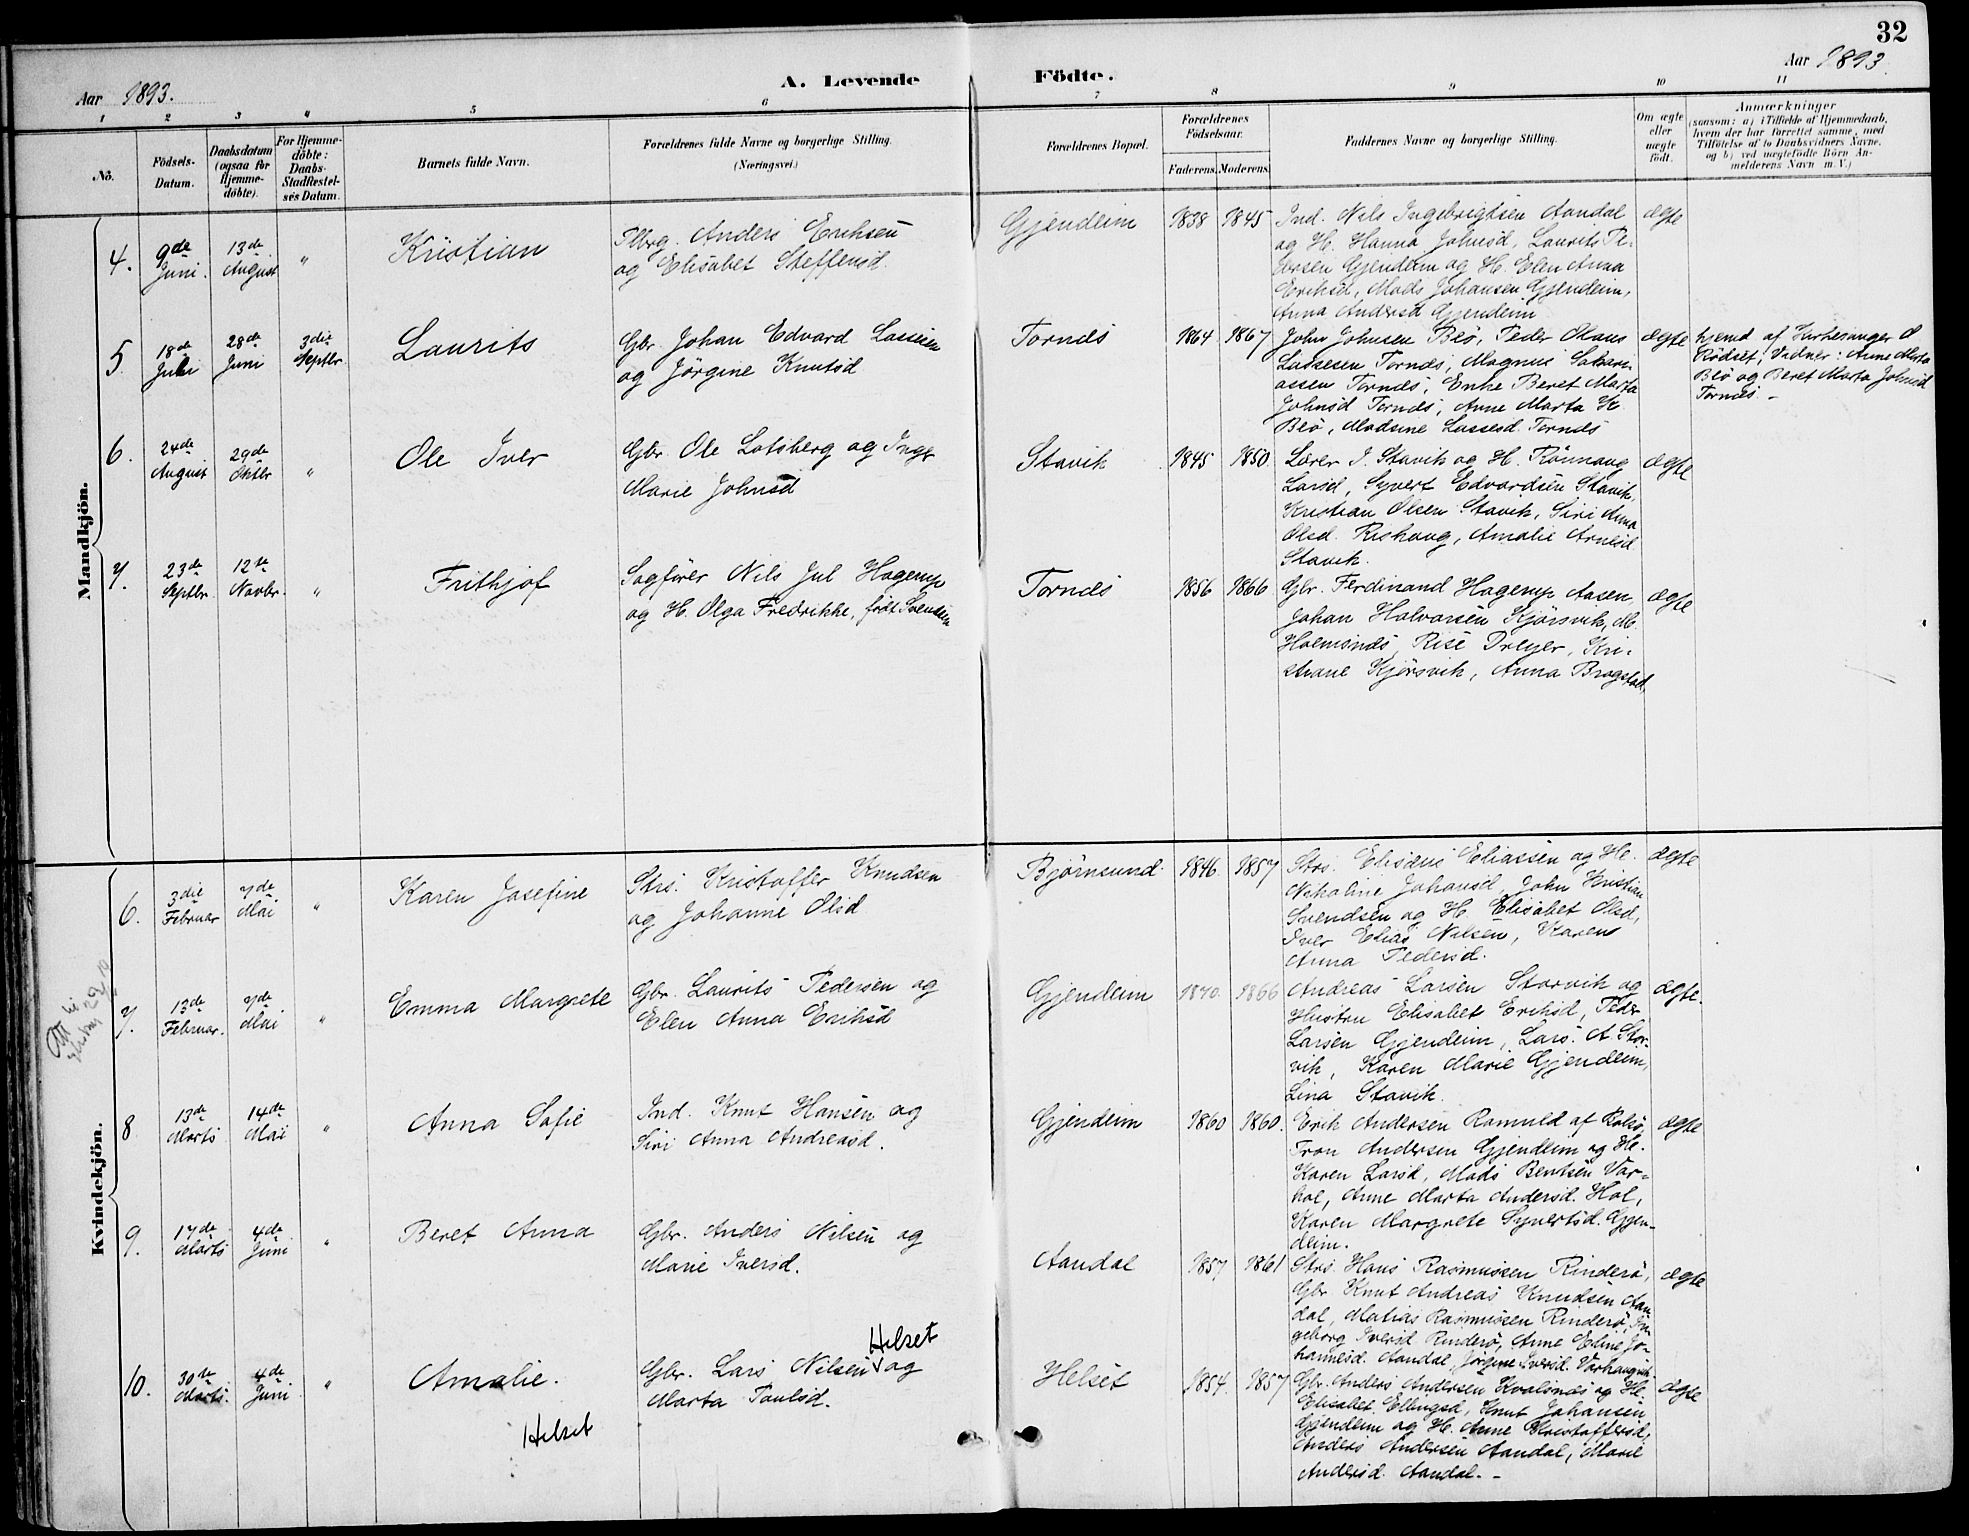 32
Aar 1893.
A. Levende Födte.
Aar 1893.
1 2 3 4 5 6 7 8 9 10 11
No.
Födsels-Datum.
Daabsdatum (ogsaa for Hjemme-döbte).
For Hjemme-döbte: Daabs-Stadfæstel-ses Datum.
Barnets fulde Navn.
Forældrenes fulde Navne og borgerlige Stilling.
(Næringsvei.)
Forældrenes Bopæl.
Forældrenes Födselsaar.
Faderens. Moderens.
Faddernes Navne og borgerlige Stilling.
Om ægte eller uægte födt.
Anmærkninger
(saasom: a) i Tilfælde af Hjemmedaab,
hvem der har forrettet samme, med
Tilföielse af to Daabsvidners Navne.
og b) ved uægtefödte Börn An-
melderens Navn m. V.)
Mandkjön.
4. 9de Juni. 13de August " Kristian
Anders Eriksen
og Elisabet Steffensd.
Gjendeim 1838 1845
Ind. Nils Ingebrigtsen Aandal
og H. Hanna Johnsd, Laurits Pe-
dersen Gjendeim og H. Elen Anna
Eriksd, Mads Johansen Gjendeim,
Anna Andersd Gjendeim
ægte
5 18de Juli 28de Juni 3die Septbr Laurits
Gbr. Johan Edvard Lassesen
og Jörgine Knutsd
Tornes 1864 1867
John Johnsen Blö, Peder Olaus
Lassesen Tornes, Magnus
Tornes, Enke Beret Marta
Johnsd Tornes, Anne Marta K.
Blö, Madsine Lassesd. Tornes
ægte
hjemd af Kirkesanger O
Rödset, Vidner: Anne Marta
Blö og Beret Marta Johnsd
Tornes. -
6. 24de August 29de Oktbr " Ole Iver
Gbr Ole Lotsberg og Inger
Marie Johnsd
Stavik 1845 1850
Lærer I. Stavik og H. Rönnaug
Larsd, Syvert Edvardsen Stavik,
Kristian Olsen Stavik, Siri Anna
Olsd. Rishaug, Amalie Arnesd
Stavik.
ægte
7. 23de Septbr. 12te Novbr. " Frithjof
Sagfører Nils Jul Hagerup
og H. Olga Fredrikke, født Svensen
Tornes 1856 1866
Gbr. Ferdinand Hagerup Aasen,
Johan Halvorsen Kjörsvik, M.
Holmsnes, Rise Dreyer, Kri-
stiane Kjörsvik, Anna Brogstad,
ægte
Kvindekjön.
6. 3die Februar 7de Mai " Karen Josefine
Strs. Kristoffer Knudsen
og Johanne Olsd
Björnsund. 1846. 1857
Strs. Elisæus Eliassen og H.
Nikoline Johansd, John Kristian
Svendsen og H. Elisabet Olsd,
Iver Elias Nilsen, Karen
Anna Pedersd.
ægte
7. 13de Februar. 7de Mai " Emma Margrete
Gbr. Laurits Pedersen og
Elen Anna Eriksd
Gjendeim 1840. 1866
Andreas Larsen Storvik og
Hustru Elisabet Eriksd, Peder
Larsen Gjendeim, Lars. A. Stor-
vik, Karen Marie Gjendeim,
Lina Stavik.
ægte.
8 13de Marts 14de Mai " Anna Sofie
Ind. Knut Hansen og
Siri Anna Andreasd.
Gjendeim 1860 1860.
Erik Andersen Romuld af
Tron Andersen Gjendeim og H.
Karen Larsd, Mads Bentsen Var-
hol, Anne Marta Andersd. Hol,
Karen Margrete Syvertsd. Gjen-
deim.
ægte
9. 17de Marts 4de Juni " Beret Anna
Gbr. Anders Nilsen og
Marie Iversd.
Aandal 1857 1861
Strs. Hans Rasmussen Rinderö,
Gbr. Knut Andreas Knudsen Aan-
dal, Matias Rasmussen Rinderö, In-
geborg Iversd Rinderö, Anne Eline Jo-
hannesd. Aandal, Jørgine Iversd.
ægte
10. 30te Marts. 4de Juni " Amalie.
Helset
Gbr. Lars Nilsen Helset og
Marta Paulsd.
Helset 1854. 1857
Gbr. Anders Andersen Kvalsnes og H.
Elisabet Ellingsd, Knut Johansen
Gjendeim og H. Anne Kristoffersd,
Anders Andersen Aandal, Marie
Andersd. Aandal. -
ægte